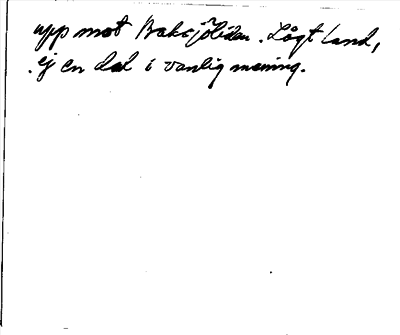 upp mot Baksjöliden. Lågt land,
ej en dal i vanlig mening.